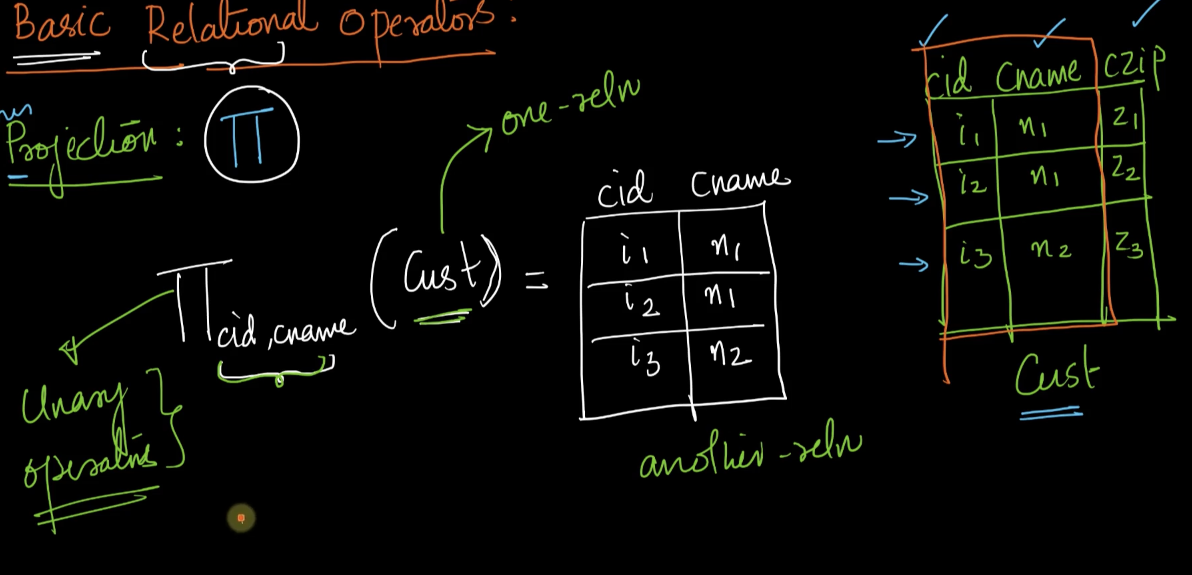 Basic Relational Operators:
un
Projection : Π
one-reln
Π cid, cname (Cust) =
cid cname
i1 n1
i2 n1
i3 n2
another-reln
Unary
operations
cid Cname czip
i1 n1 z1
i2 n1 z2
i3 n2 z3
Cust